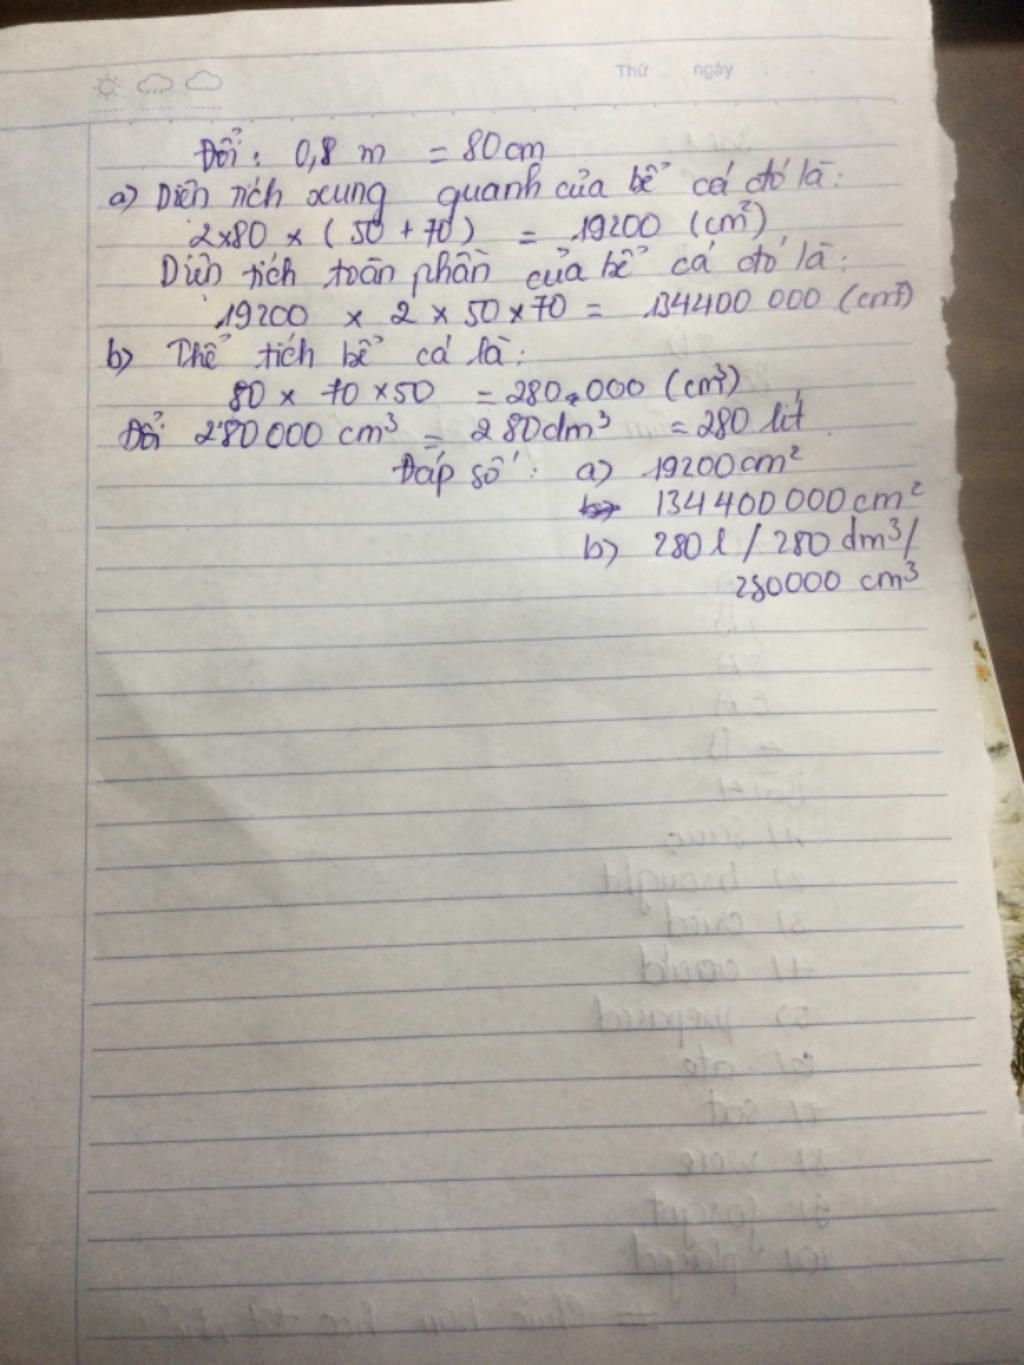 Thứ ngày
Đổi: 0,8 m = 80 cm
a) Diện tích xung quanh của bể cá đó là:
2x80 x (50 + 70) = 19200 (cm²)
Diện tích toàn phần của bể cá đó là:
19200 x 2 x 50 x 70 = 134400 000 (cm²)
b) Thể tích bể cá là:
80 x 70 x 50 = 280.000 (cm³)
Đổi 280000 cm³ = 280dm³ = 280 lít.
Đáp số: a) 19200cm²
134 400 000 cm²
b) 280 l / 280 dm³/
280000 cm³